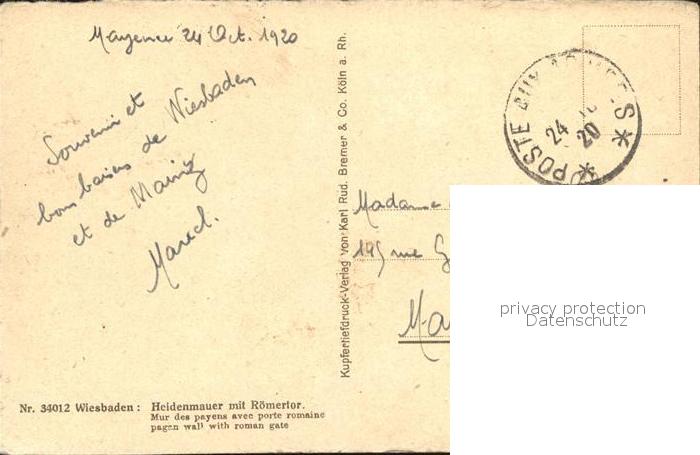 Mayence 24 Oct. 1920
Souvenir et
bons baisers de Wiesbaden
et de Mainz
Marcel.
Kupfertiefdruck-Verlag von Karl Rud. Bremer & Co. Köln a. Rh.
POSTE AUX ARMEES *
24
20
Madame
195 rue
Ma
privacy protection
Datenschutz
Nr. 34012 Wiesbaden: Heidenmauer mit Römertor.
Mur des payens avec porte romaine
pagan wall with roman gate